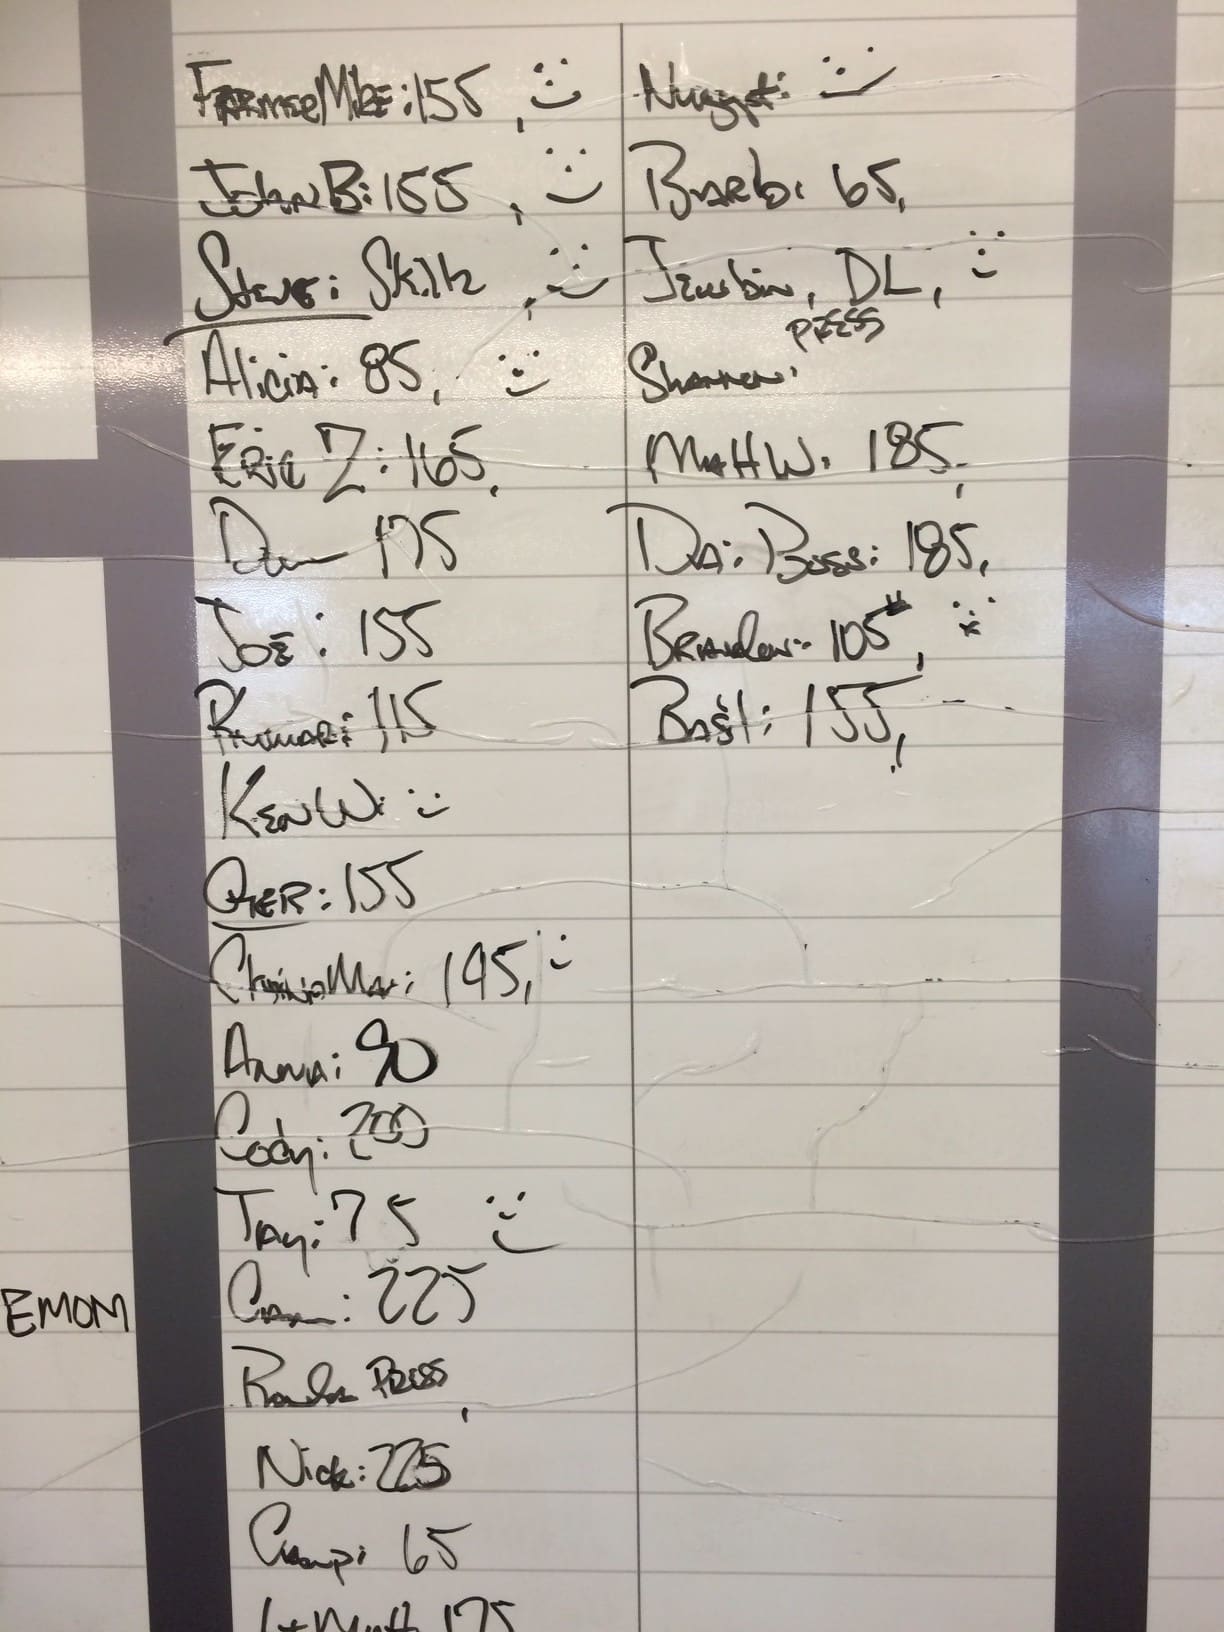 Farmer Mike: 155,
John B: 155,
Steve: Skillz,
Alicia: 85,
Eric Z: 165,
175
Joe: 155
115
Ken W:
155
195,
Anna: 90
Cody: 200
Tay: 75
Cam: 225
Press,
Nick: 225
Camp: 65
Lt Matt 175
EMOM
Nugget:
Barb: 65,
DL,
Press
Shannon:
Matt W: 185,
Da: Boss: 185,
Brandon: 105#,
Basil: 155,